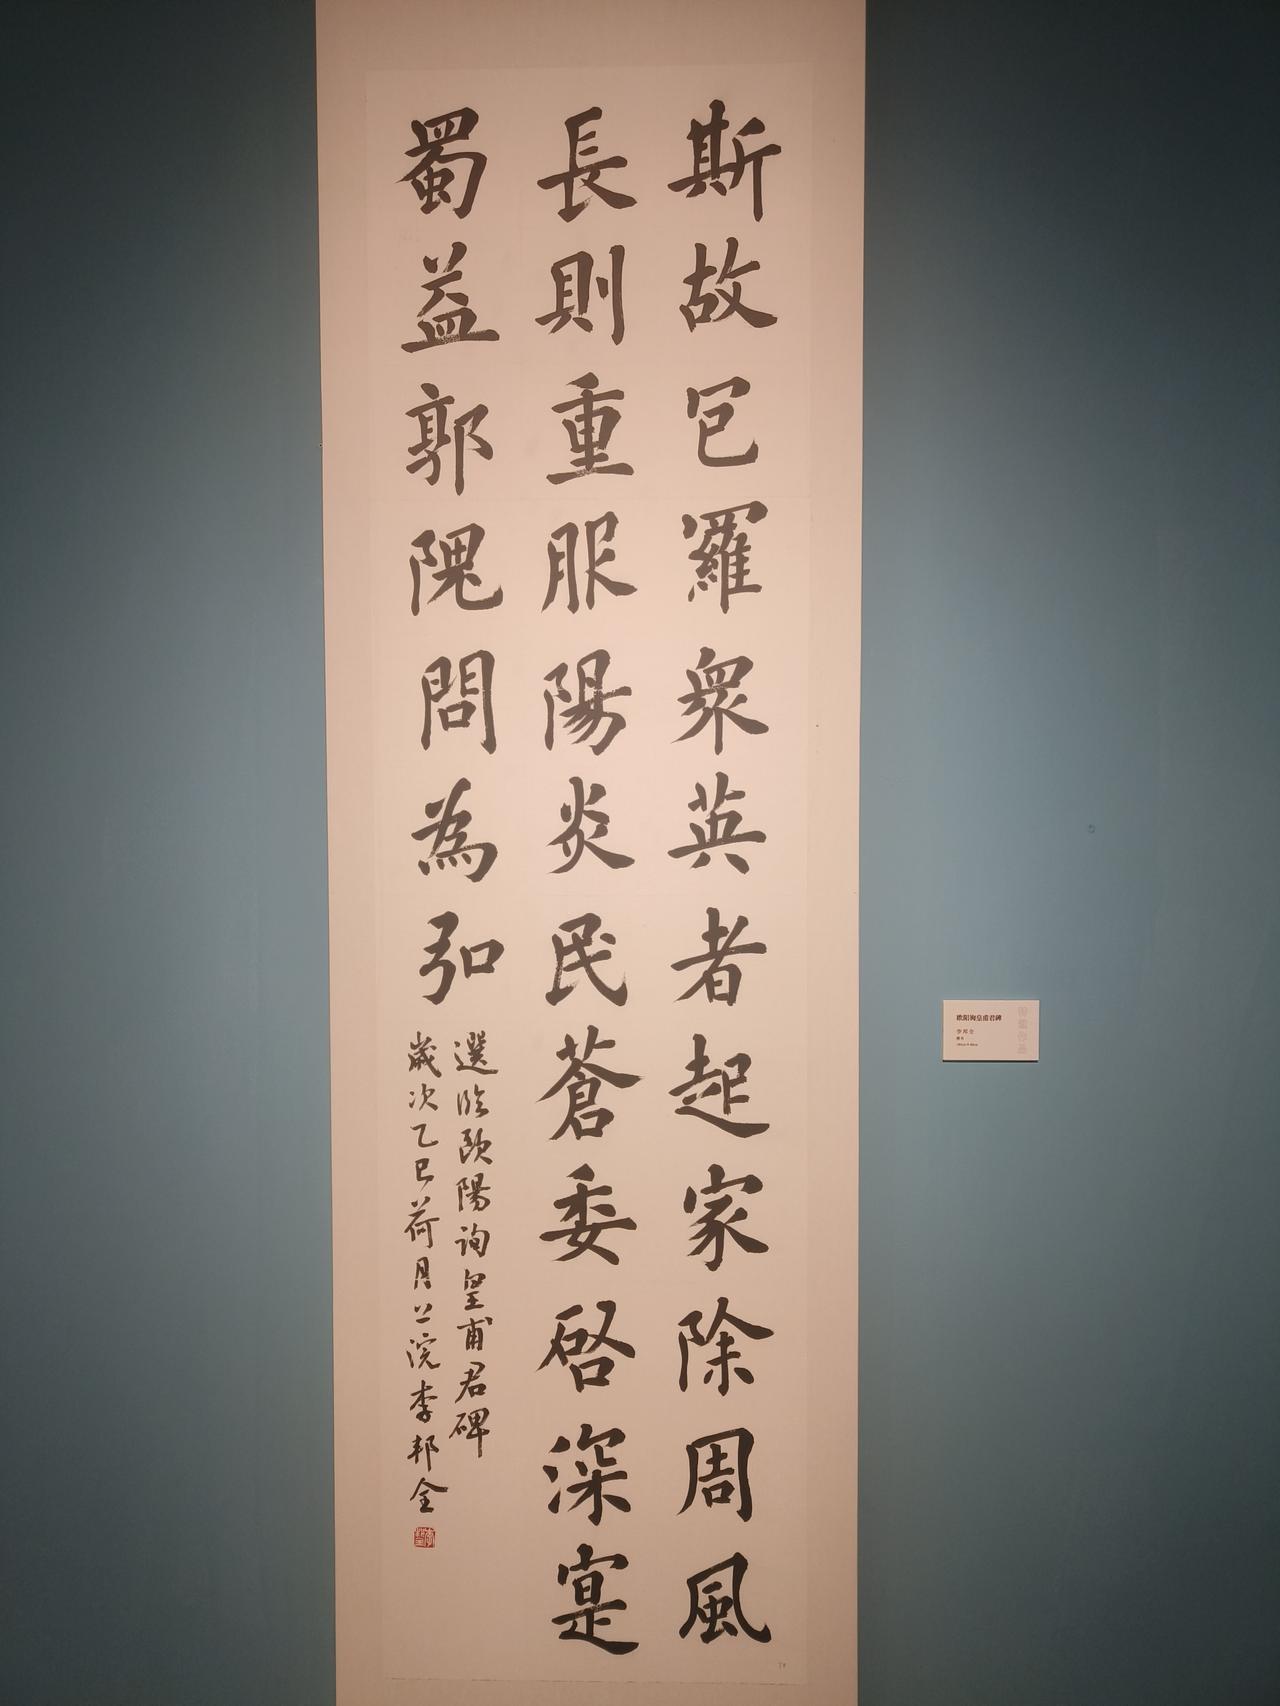 斯故包羅衆英者起家除周風
長則重服陽炎民蒼委啓深寔
蜀益郭隗問為弘
選临歐陽詢皇甫君碑
歲次乙巳荷月上浣李邦全
歐陽詢皇甫君碑
李邦全